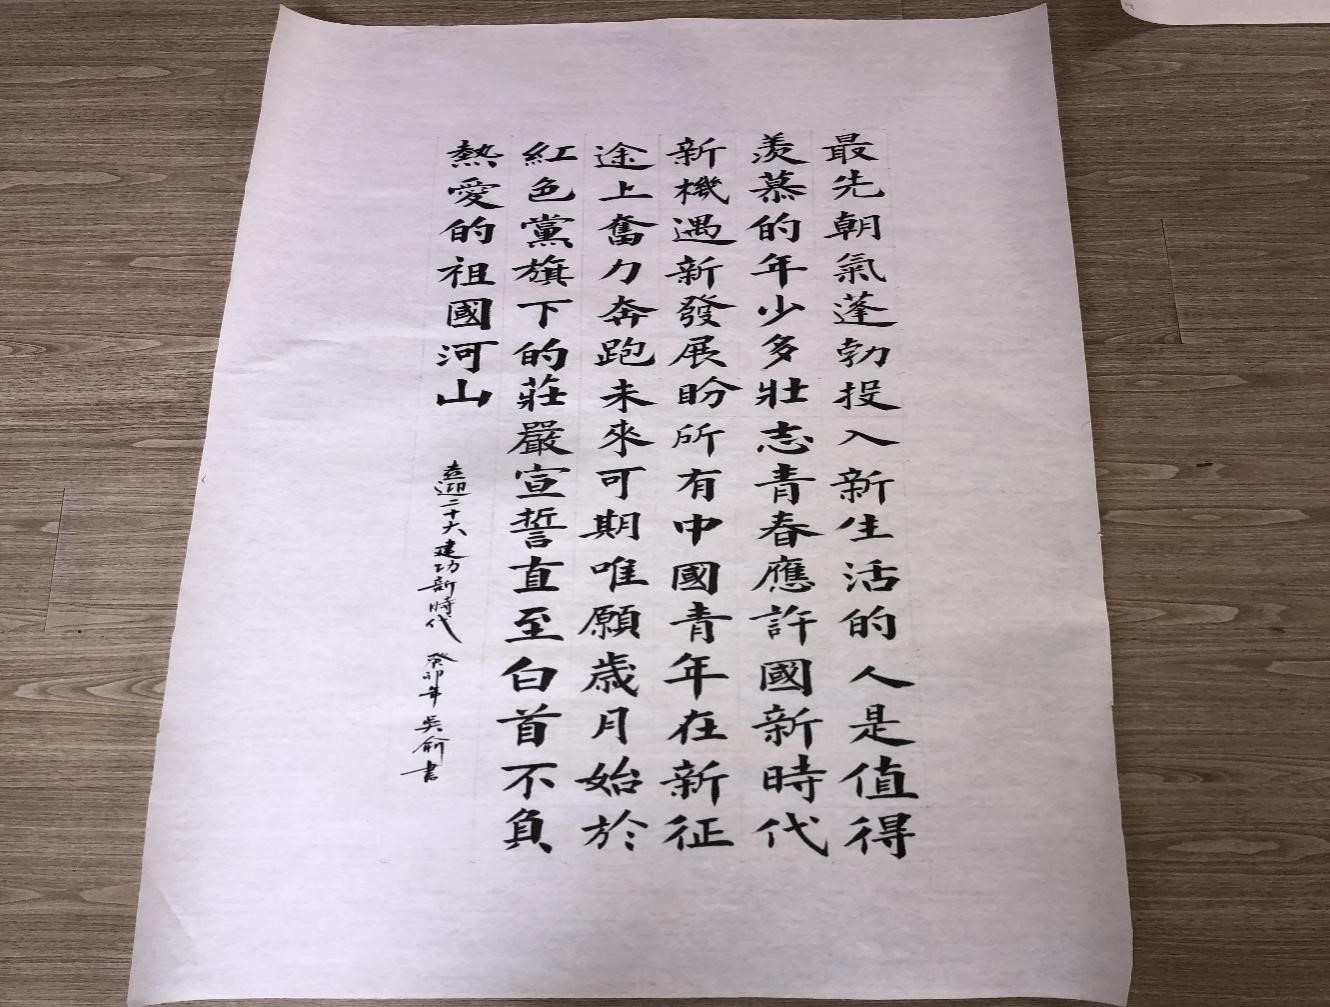 最先朝氣蓬勃投入新生活的人是值得
羨慕的年少多壯志青春應許國新時代
新機遇新發展盼所有中國青年在新征
途上奮力奔跑未來可期唯願歲月始於
紅色黨旗下的莊嚴宣誓直至白首不負
熱愛的祖國河山
喜迎二十大建功新時代 癸卯年 吳俞書